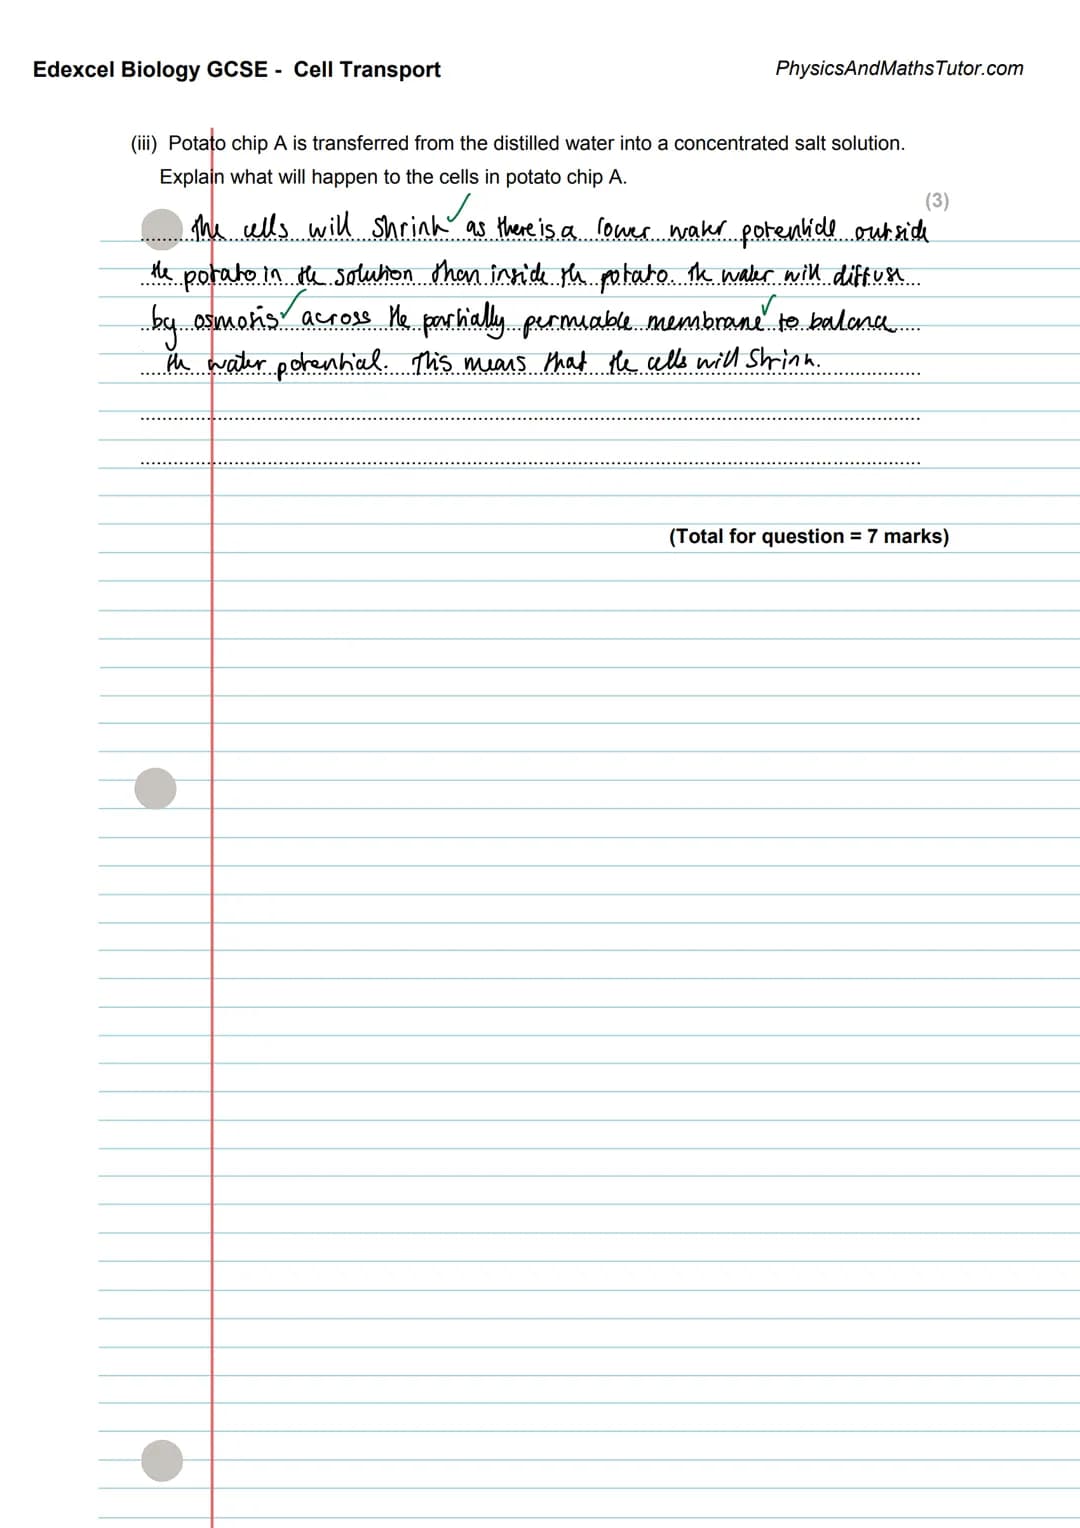 Edexcel Biology GCSE - Cell Transport
PhysicsAndMathsTutor.com
(iii) Potato chip A is transferred from the distilled water into a concentrated salt solution.
Explain what will happen to the cells in potato chip A.
(3)
The cells will shrink ✓ as there is a lower water potentide outside
the potato in the solution then inside the potato. The water will diffuse
by osmosis ✓ across the partially permiable membrane ✓ to balance
the water potential. This means that the cells will shrink.
(Total for question = 7 marks)